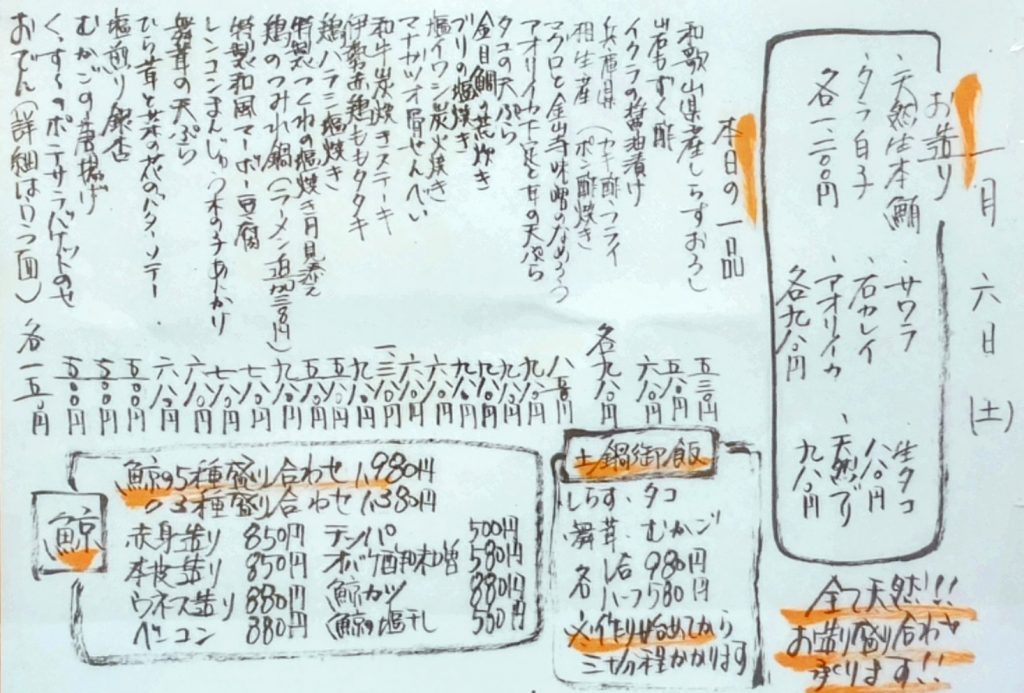 一月六日(土)
お造り
・天然生本鮪
・タラ白子
各一、二〇〇円
・サワラ
・石カレイ
・アオリイカ
各九八〇円
生タコ
八八〇円
・天然ブリ
九八〇円
全て天然!!
お造り盛り合わせ
承ります!!
本日の一品
和歌山県産しらすおろし 五三〇円
岩もずく酢 五八〇円
イクラの醤油漬け 六八〇円
兵庫県
相生産 (カキ酢・フライ
ポン酢焼き 各九八〇円
マグロと金山寺味噌のなめろう 八八〇円
アオリイカ下足と甘の天ぷら 九八〇円
タコの天ぷら 九八〇円
金目鯛の煮炊き
ブリの塩焼き
塩イワシ炭火焼き 六八〇円
マナカツオ骨せんべい 六八〇円
和牛炭焼きステーキ
伊勢赤鶏ももタタキ 九八〇円
鶏ハラミ塩焼き 五八〇円
特製つくねの塩焼き月見添え 五五〇円
鶏のつみれ鍋(ラーメン追加三八〇円) 九八〇円
特製和風マーボー豆腐 七八〇円
レンコンまんじゅう木の子あんかけ 七八〇円
舞茸の天ぷら 六八〇円
ひら茸と菜の花のバターソテー 六八〇円
塩煎り銀杏 五〇〇円
むかごの唐揚げ 五〇〇円
くんすーのポテサラバゲットのせ 五〇〇円
おでん(詳細はウラ面) 各一五〇円
土鍋御飯
しらす、タコ
舞茸、むかご
各 一合 980円
ハーフ 580円
※作り始めてから
三十分程かかります
鯨
鯨の5種盛り合わせ 1,980円
〃 3種盛り合わせ 1,380円
赤身造り 850円
本皮造り 850円
ウネス造り 880円
ベーコン 880円
テッパ 500円
オバケ酢味噌 580円
鯨カツ 880円
鯨の塩干し 580円